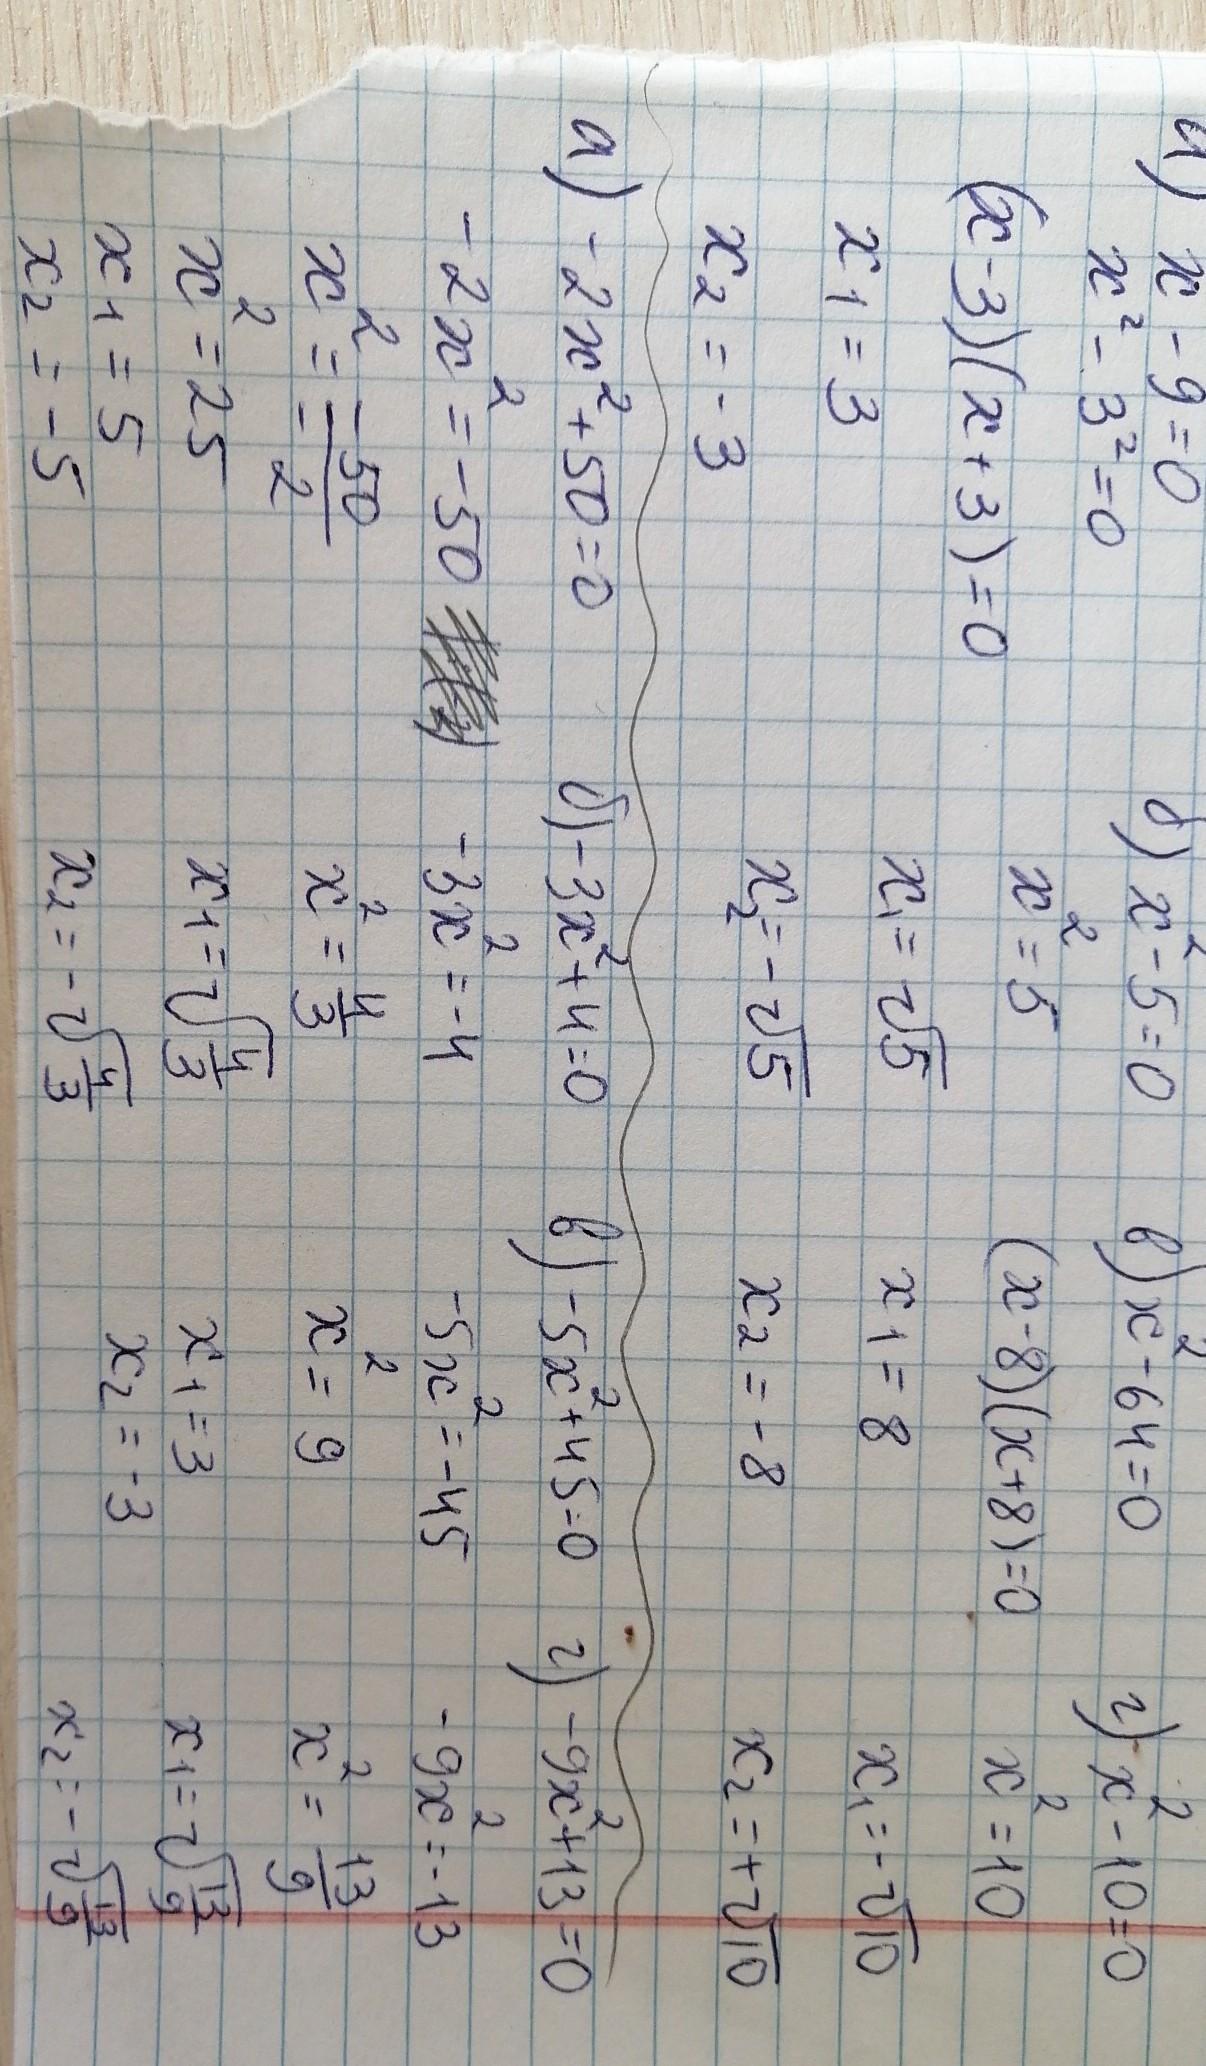 а) x - 9 = 0
x² - 3² = 0
(x - 3)(x + 3) = 0
x1 = 3
x2 = -3
б) x² - 5 = 0
x² = 5
x1 = √5
x2 = -√5
в) x² - 64 = 0
(x - 8)(x + 8) = 0
x1 = 8
x2 = -8
г) x² - 10 = 0
x² = 10
x1 = -√10
x2 = +√10
а) -2x² + 50 = 0
-2x² = -50
x² = -50/-2
x² = 25
x1 = 5
x2 = -5
б) -3x² + 4 = 0
-3x² = -4
x² = 4/3
x1 = √4/3
x2 = -√4/3
в) -5x² + 45 = 0
-5x² = -45
x² = 9
x1 = 3
x2 = -3
г) -9x² + 13 = 0
-9x² = -13
x² = 13/9
x1 = √13/9
x2 = -√13/9